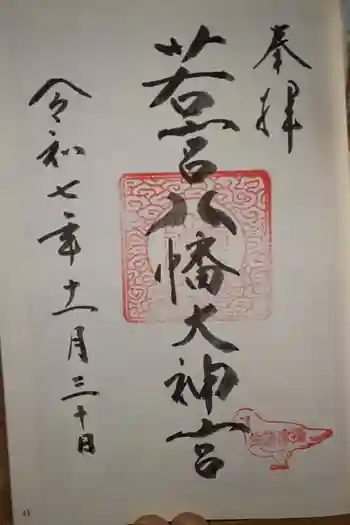 奉拝
若宮八幡大神宮
令和七年十一月三十日
41